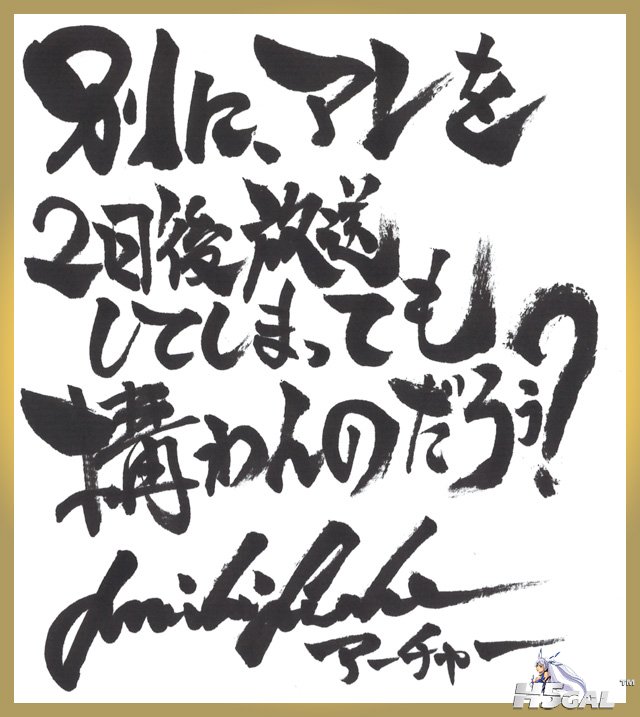 別に、アレを
2日後放送
してしまっても
構わんのだろぅ?
アーチャー
HSGAL™